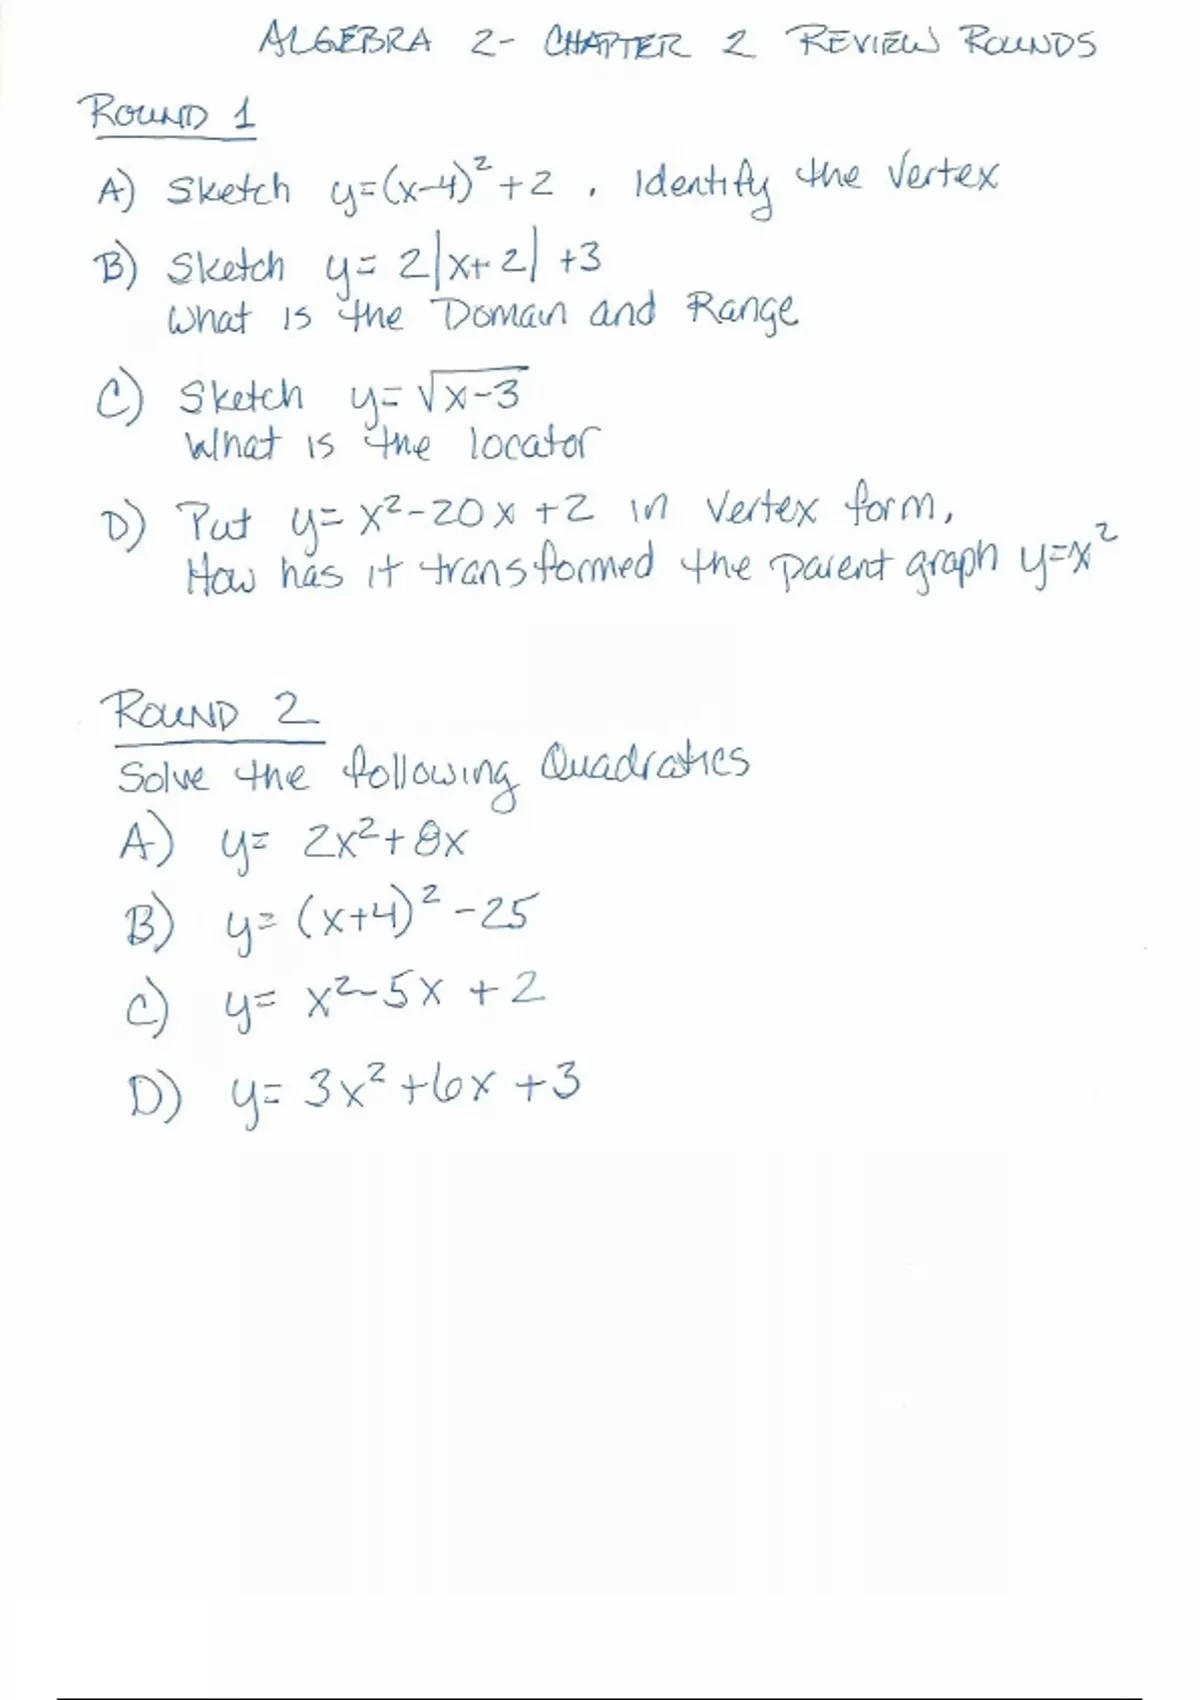 ALGEBRA 2- CHAPTER 2 REVIEW ROUNDS
ROUND 1
A) Sketch y=(x-4)²+2 . Identify the Vertex
B) Sketch y= 2|x+2| +3
What is the Domain and Range
C) Sketch y= √x-3
What is the locator
D) Put y= x²-20x +2 in Vertex form,
How has it transformed the parent graph y=x²
ROUND 2
Solve the following Quadratics
A) y= 2x²+8x
B) y= (x+4)² -25
C) y= x²-5x +2
D) y= 3x² +6x +3